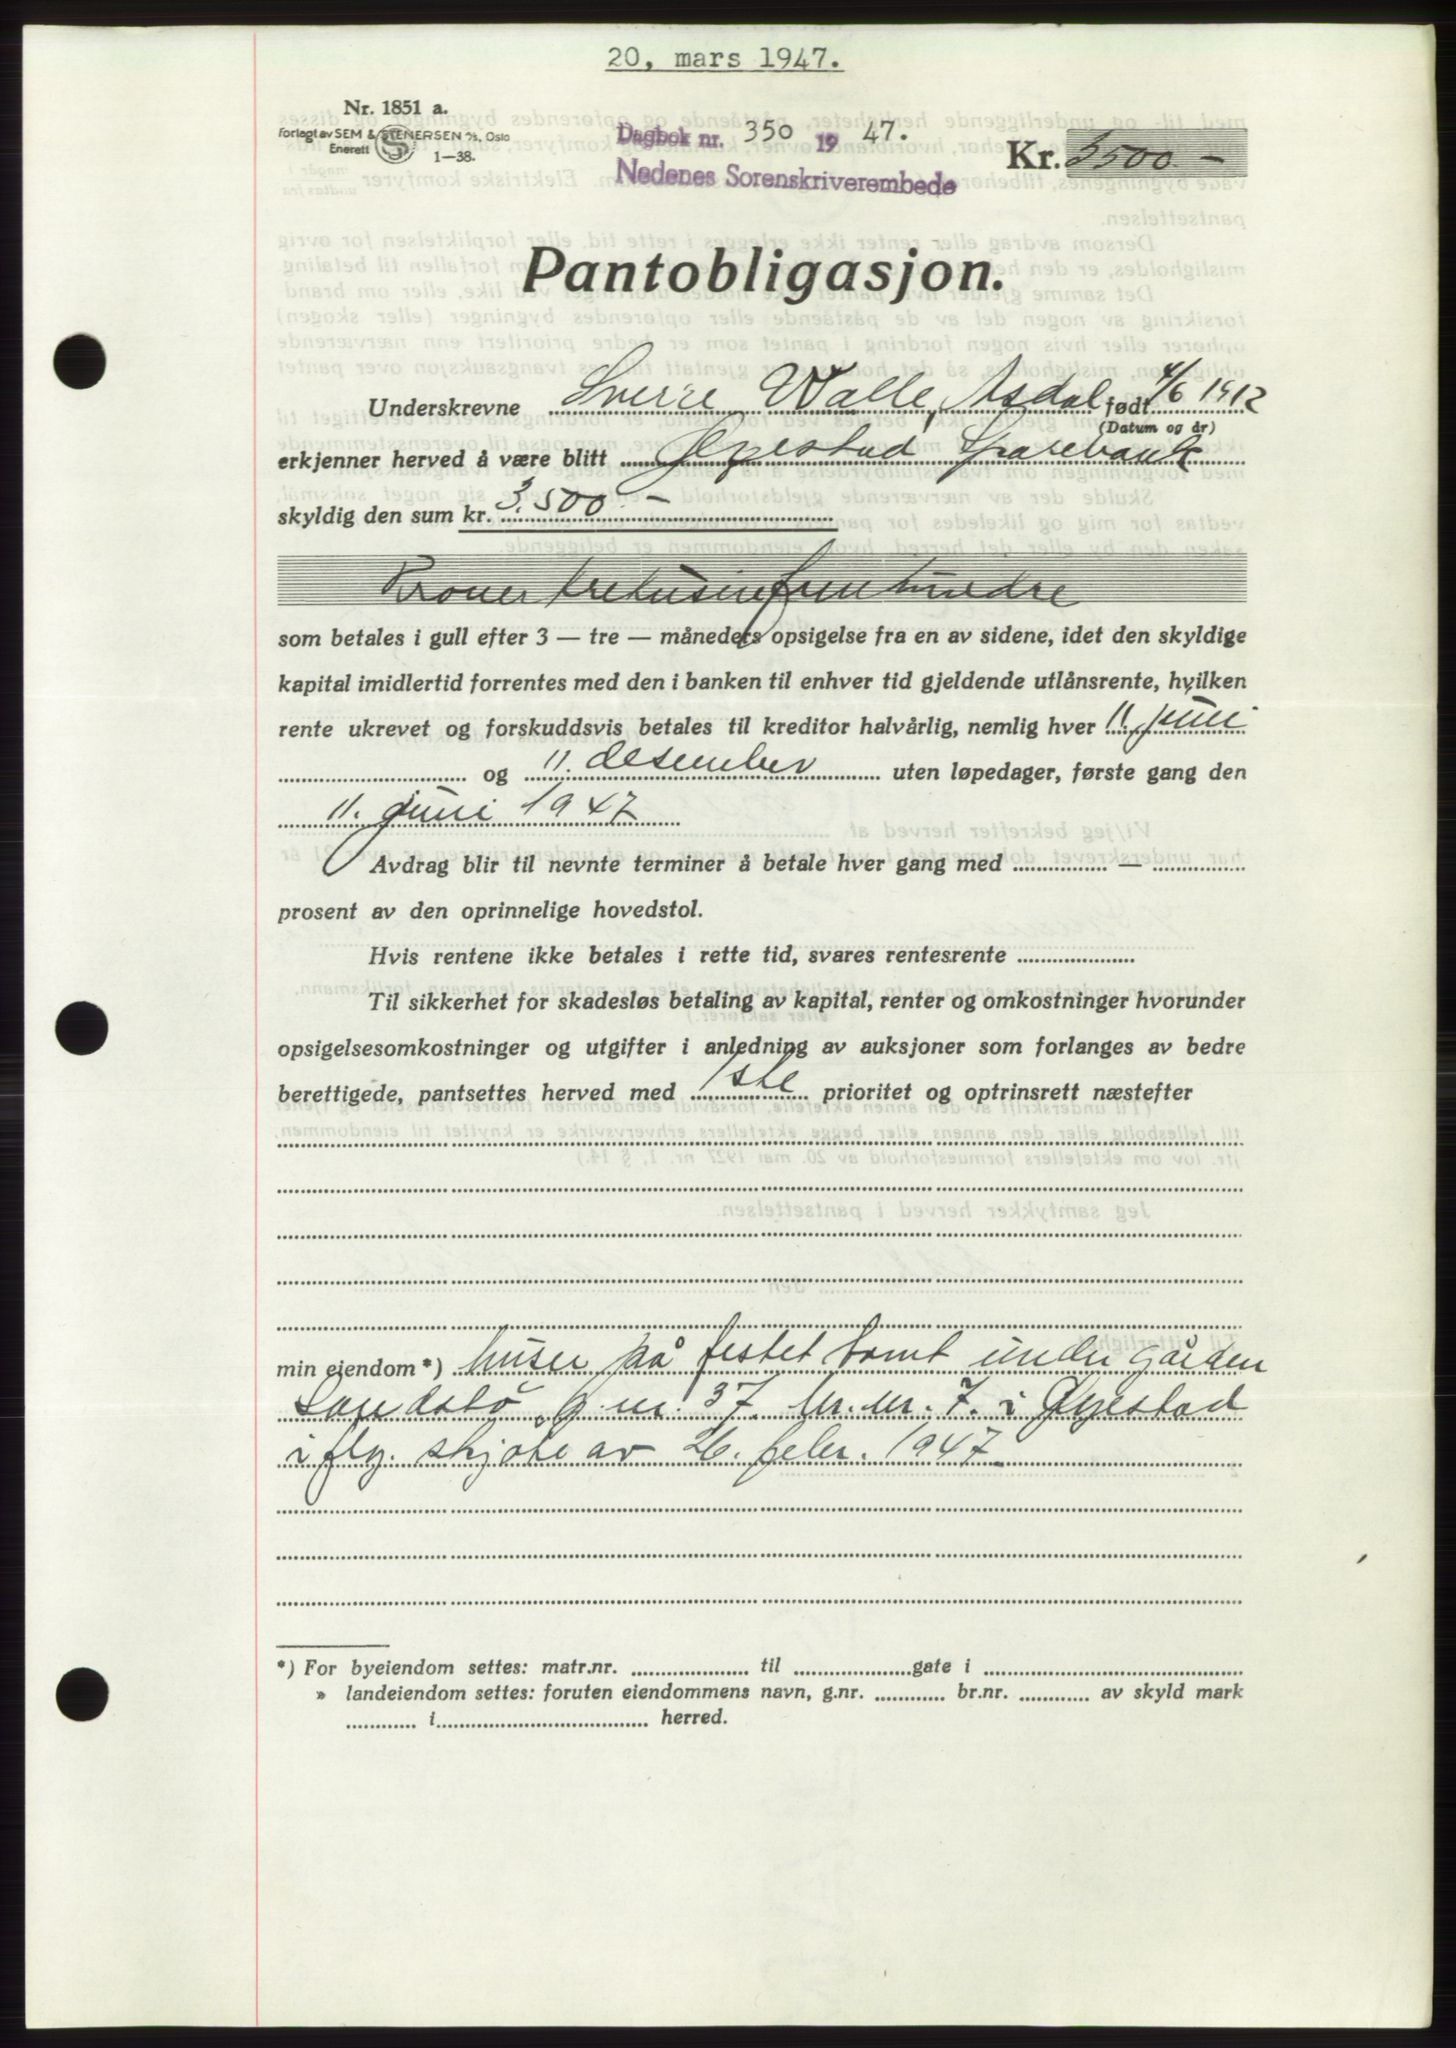 20, mars 1947.
Nr. 1851 a.
Forlagt av SEM & STENERSEN A/S, Oslo
Enerett 1—38.
Dagbok nr. 350 19 47.
Nedenes Sorenskriverembede
Kr. 3500 -
Pantobligasjon.
Underskrevne Sverre Walle, Asdal født 4/6 1912
(Datum og år)
erkjenner herved å være blitt Øyestad Sparebank
skyldig den sum kr. 3.500 -
Kroner tretusinfemhundre
som betales i gull efter 3 — tre — måneders opsigelse fra en av sidene, idet den skyldige
kapital imidlertid forrentes med den i banken til enhver tid gjeldende utlånsrente, hvilken
rente ukrevet og forskuddsvis betales til kreditor halvårlig, nemlig hver 11. juni
og 11. desember uten løpedager, første gang den
11. juni 1947
Avdrag blir til nevnte terminer å betale hver gang med —
prosent av den oprinnelige hovedstol.
Hvis rentene ikke betales i rette tid, svares rentesrente
Til sikkerhet for skadesløs betaling av kapital, renter og omkostninger hvorunder
opsigelsesomkostninger og utgifter i anledning av auksjoner som forlanges av bedre
berettigede, pantsettes herved med 1ste prioritet og optrinsrett næstefter
min eiendom *) huser på festet tomt under gården
Sandstø g.nr. 37 br.nr. 7. i Øyestad
iflg. skjøte av 26. febr. 1947
*) For byeiendom settes: matr.nr. til gate i
» landeiendom settes: foruten eiendommens navn, g.nr. br.nr. av skyld mark
i herred.